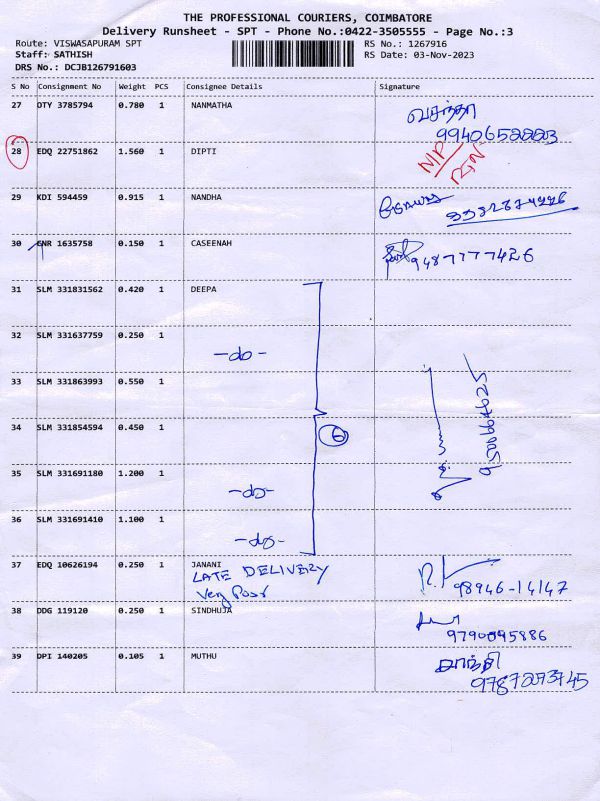 THE PROFESSIONAL COURIERS, COIMBATORE
Delivery Runsheet - SPT - Phone No.:0422-3505555 - Page No.:3
Route: VISWASAPURAM SPT RS No.: 1267916
Staff: SATHISH RS Date: 03-Nov-2023
DRS No.: DCJB126791603
S No Consignment No Weight PCS Consignee Details Signature
27 OTY 3785794 0.780 1 NANMATHA வசந்தா
28 EDQ 22751862 1.560 1 DIPTI
29 KDI 594459 0.915 1 NANDHA
30 GNR 1635758 0.150 1 CASEENAH 9487777426
31 SLM 331831562 0.420 1 DEEPA
32 SLM 331637759 0.250 1
-do-
33 SLM 331863993 0.550 1
34 SLM 331854594 0.450 1
6
35 SLM 331691180 1.200 1
-do-
36 SLM 331691410 1.100 1
-do-
37 EDQ 10626194 0.250 1 JANANI
LATE DELIVERY 98946-14147
Very Poor
38 DDG 119120 0.250 1 SINDHUJA
9790095886
39 DPI 140205 0.105 1 MUTHU சாந்தி
9787273745